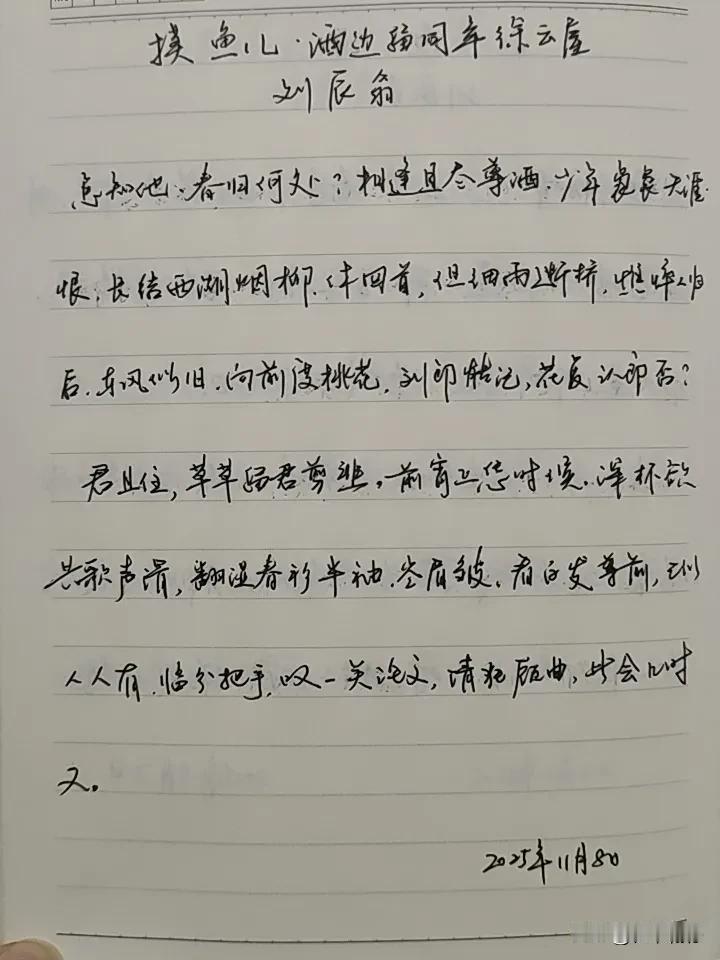 摸鱼儿·酒边留同年徐云屋
刘辰翁
怎知他、春归何处?相逢且尽尊酒.少年袅袅天涯
恨,长结西湖烟柳.休回首,但细雨断桥,憔悴人归
后.东风似旧.向前度桃花,刘郎能记,花复认郎否?
君且住,草草留君剪韭,前宵正恁时候.深杯欲
共歌声滑,翻湿春衫半袖.空眉皱,看白发尊前,已似
人人有.临分把手,叹一笑论文,清狂顾曲,此会几时
又。
2025年11月8日